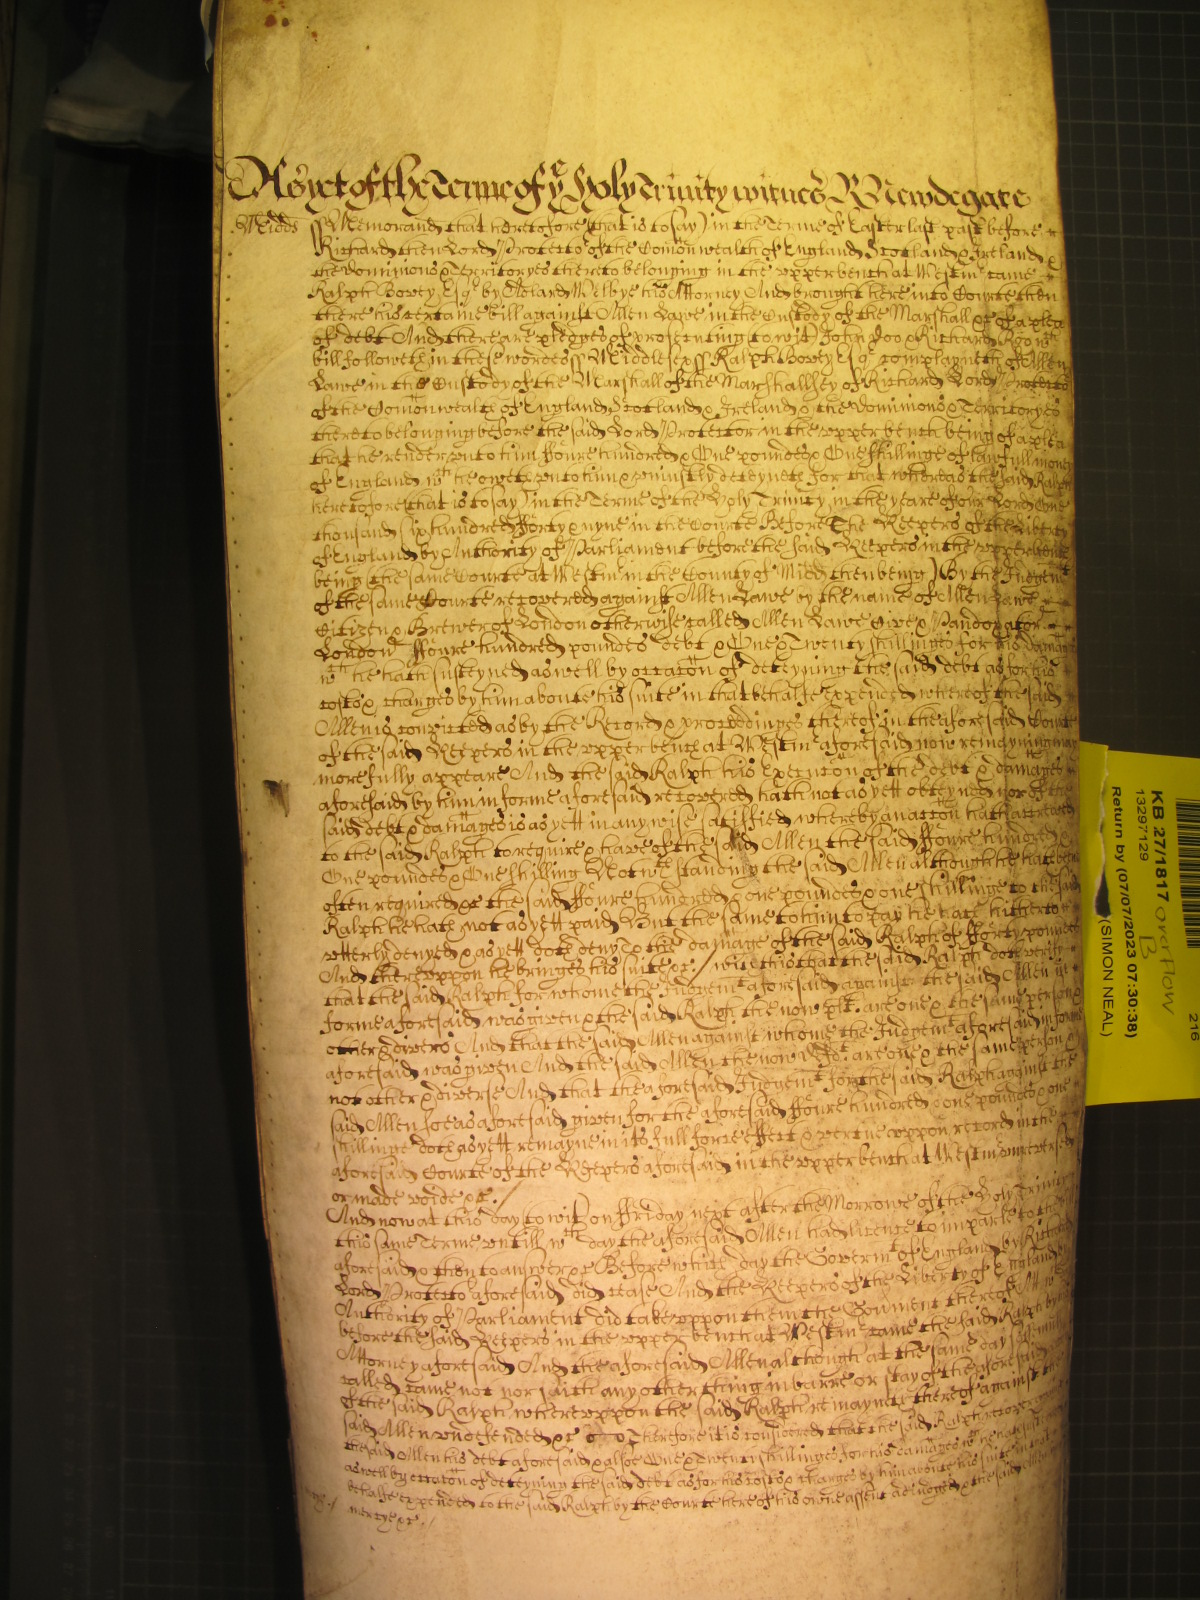 As yet of the Terme of ye Holy Trinity witnes R Newdegate
Midds ss Memorand that heretofore (that is to say) in the Terme of Easter last past before
Richard then Lord Protector of the Comonwealth of England Scotland & Ireland &
the Dominions & Territoryes thereto belonging in the upper bench at Westmr came
Ralph Bovey Esqr by Roland Welbye his Attorney And brought here into Courte then
there his certaine bill against Allen Lawe in the Custody of the Marshall &c of a plea
of debt And there are pledges of prosecuting to wit John Doo & Richard Roo wch
bill followeth in these wordes ss Middlesex ss Ralph Bovey Esqr complayneth of Allen
Lawe in the Custody of the Marshall of the Marshallsey of Richard Lord Protector
of the Comonwealth of England Scotland & Ireland & the Dominions & Territoryes
thereto belonging before the said Lord Protector in the upper bench being of a plea
that he render unto him ffoure hundred & One poundes & One shillinge of lawfull money
of England wch he oweth unto him & uniustly deteyneth for that whereas the said Ralph
heretofore (that is to say) in the Terme of the Holy Trinity in the yeare of our Lord One
thousand six hundred fforty & nyne in the Courte Before The Keepers of the Liberty
of England by Authority of Parliament before the said Keepers in the upper bench
being (the same Courte at Westmr in the County of Midd then being) By the Judgemt
of the same Courte recovered against Allen Lawe by the name of Allen Lawe
Citizen & Brewer of London otherwise called Allen Lawe Cive & Pandoxator
London ffoure hundred poundes debt & One & Twenty shillinges for his damages
wch he hath susteyned aswell by occation of deteyning the said debt as for his
costs & charges by him aboute his suite in that behalfe expended whereof the said
Allen is convicted as by the Record & proceedinges thereof in the aforesaid Courte
of the said Keepers in the upper bench at Westmr aforesaid now remayning may
more fully appeare And the said Ralph his Execution of the debt & damages
aforesaid by him in forme aforesaid recovered hath not as yett obteyned nor of the
said debt & damages is as yett in any wise satisfied whereby an action hath accrewed
to the said Ralph to require & have of the said Allen the said ffoure hundred &
One poundes & One shilling Notwthstanding the said Allen although he hath been
often required &c the said ffoure hundred & one poundes & one shillinge to the said
Ralph he hath not as yett paid But the same to him to pay he hath hitherto
utterly denyed & as yett doth deny To the damage of the said Ralph of fforty poundes
And thereuppon he bringes his suite &c / with this that the said Ralph doth verify
that the said Ralph for whome the Judgemt aforesaid against the said Allen in
forme aforesaid was given & the said Ralph the now plt are one & the same person &
other & divers And that the said Allen against whome the Judgemt aforesaid in forme
aforesaid was given And the said Allen the now Deft are one & the same person &
not other & diverse And that the aforesaid Judgemt for the said Ralph against the
said Allen soe as aforesaid given for the aforesaid ffoure hundred & one poundes & one
shillinge doth as yett remayne in its full force effect & vertue uppon record in the
aforesaid Courte of the Keepers aforesaid in the upper bench at Westmr unreversed
or made voide &c /
And now at this day to wit on ffriday next after the Morrowe of the Holy Trinity
this same Terme untill wch day the aforesaid Allen had licence to imparle to the
aforesaid & then to answer &c Before which day the Governmt of England by Richard
Lord Protector aforesaid did cease And the Keepers of the Liberty of England by
Authority of Parliament did take uppon them the Goverment thereof
before the said Keepers in the upper bench at Westmr came the said Ralph by his
Attorney aforesaid And the aforesaid Allen although at the same day solemnly
called came not nor saith any other thing in barre or stay of the aforesaid
of the said Ralph whereuppon the said Ralph remaynes thereof against the
said Allen undefended &c Therefore it is considered that the said Ralph recover against
the said Allen his debt aforesaid & alsoe One & Twenty shillinges for his damages wch he hath
aswell by occation of deteyning the said debt as for his costs & charges by him aboute his suite in that
behalfe expended to the said Ralph by the Courte here of his owne assent adiudged & the said Allen in
mercye &c /
KB 27/1817 overflow
B
13297129
Return by (07/07/2023 07:30:38)
(SIMON NEAL)
216